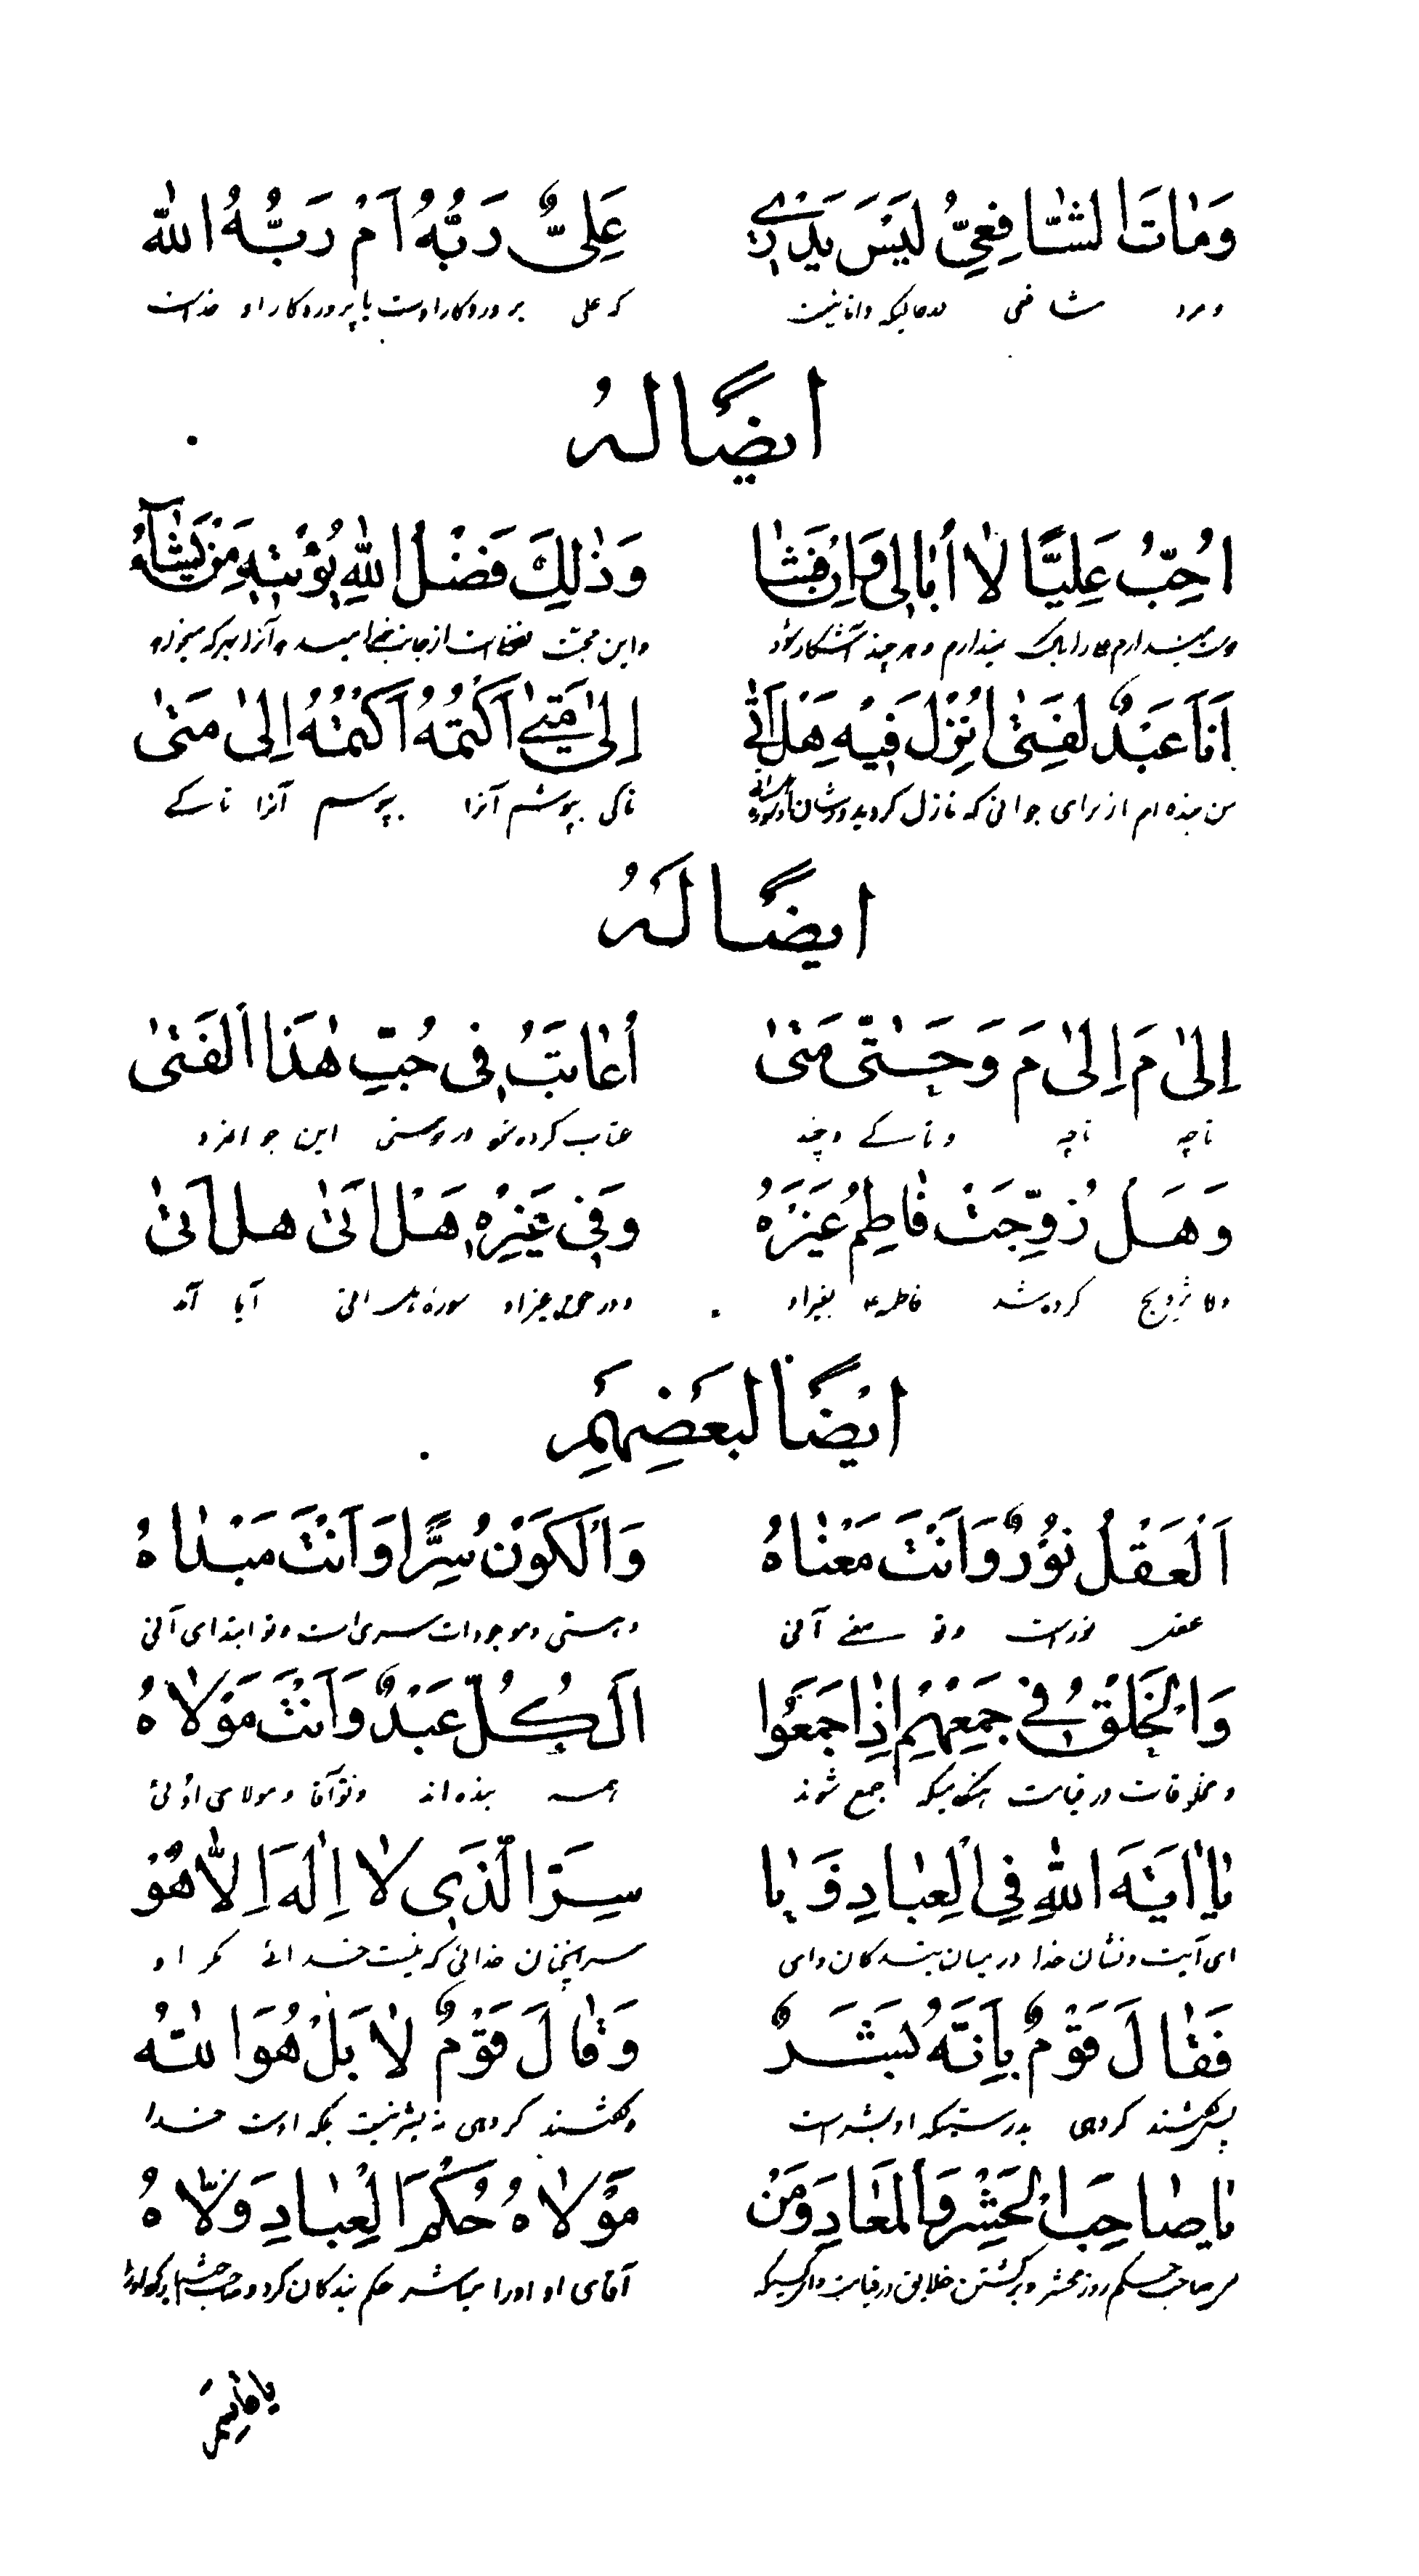 وَمٰاتَ الشّٰافِعِيُّ لَيْسَ يَدْرٖي عَلِيٌّ رَبُّهُ اَمْ رَبُّهُ اللّٰه
و مرد شافعی در حالیکه دانا نیست که علی پروردکار اوست یا پروردکار او خداست
ایضًا لهُ
اُحِبُّ عَلِيًّا لٰا اُبٰالٖي وَاِنْ فَشٰا وَذٰلِكَ فَضْلُ اللّٰهِ يُؤْتٖيهِ مَنْ يَشٰآءُ
دوست میدارم علی را باک ندارم و هر چند آشکار شود و این محبت فضلی است از جانب خدا میدهد آنرا بهر که میخواهد
اَنَا عَبْدٌ لِفَتىٰ اُنْزِلَ فٖيهِ هَلْ اَتىٰ اِلىٰ مَتىٰ اَكْتُمُهُ اَكْتُمُهُ اِلىٰ مَتىٰ
من بنده ام از برای جوانی که نازل کردید در شان او سوره هل اتی تا کی بپوشم آنرا بپوشم آنرا تا کے
ایضًا لَهُ
اِلىٰ مَ اِلىٰ مَ وَحَتّٰى مَتىٰ اُعٰاتَبُ فٖي حُبِّ هٰذَا الْفَتىٰ
تا چه تا چه و تا کے و چند عتاب کرده شوم در دوستی این جوانمرد
وَهَلْ زُوِّجَتْ فٰاطِمُ غَيْرَهُ وَفٖي غَيْرِهٖ هَلْ اَتىٰ هل اَتىٰ
و آیا تزویج کرده شد فاطمه ع بغیر او و در حق غیر او سوره هل اتی آیا آمد
ایْضًا لبَعَضِهِمْ
اَلْعَقْلُ نُوْرٌ وَاَنْتَ مَعْنٰاهُ وَالْكَوْنُ سِرًّا وَاَنْتَ مَبْدٰاهُ
عقل نور است و تو معنی آنی و هستی و موجودات سری است و تو ابتدای آنی
وَالْخَلْقُ فٖي جَمْعِهِمْ اِذٰا جَمَعُوا اَلْكُلُّ عَبْدٌ وَاَنْتَ مَوْلٰاهُ
و مخلوقات در قیامت هنکامیکه جمع شوند همه بنده اند و تو آقا و مولای او
يٰا اٰيَةَ اللّٰهِ فِي الْعِبٰادِ وَيٰا سِرَّ الَّذٖي لٰا اِلٰهَ اِلّٰا هُوْ
ای آیت و نشان خدا در میان بندکان و ای سر پنهان خدائی که نیست خدائے مکر او
فَقٰالَ قَوْمٌ بِاَنَّهُ بَشَرٌ وَقٰالَ قَوْمٌ لٰا بَلْ هُوَ اللّٰهُ
پس کفتند کروهی بدرستیکه او بشر است و کفتند کروهی نه بشر نیست بلکه اوست خدا
يٰا صٰاحِبَ الْحَشْرِ وَالْمَعٰادِ وَمَنْ مَوْلٰاهُ حُكْمَ الْعِبٰادِ وَلّٰاهُ
ای صاحب حکم روز محشر و برکشتن خلایق در قیامت و ای کسیکه آقای او او را حکم بندکان کرد
یا قاسِمَ